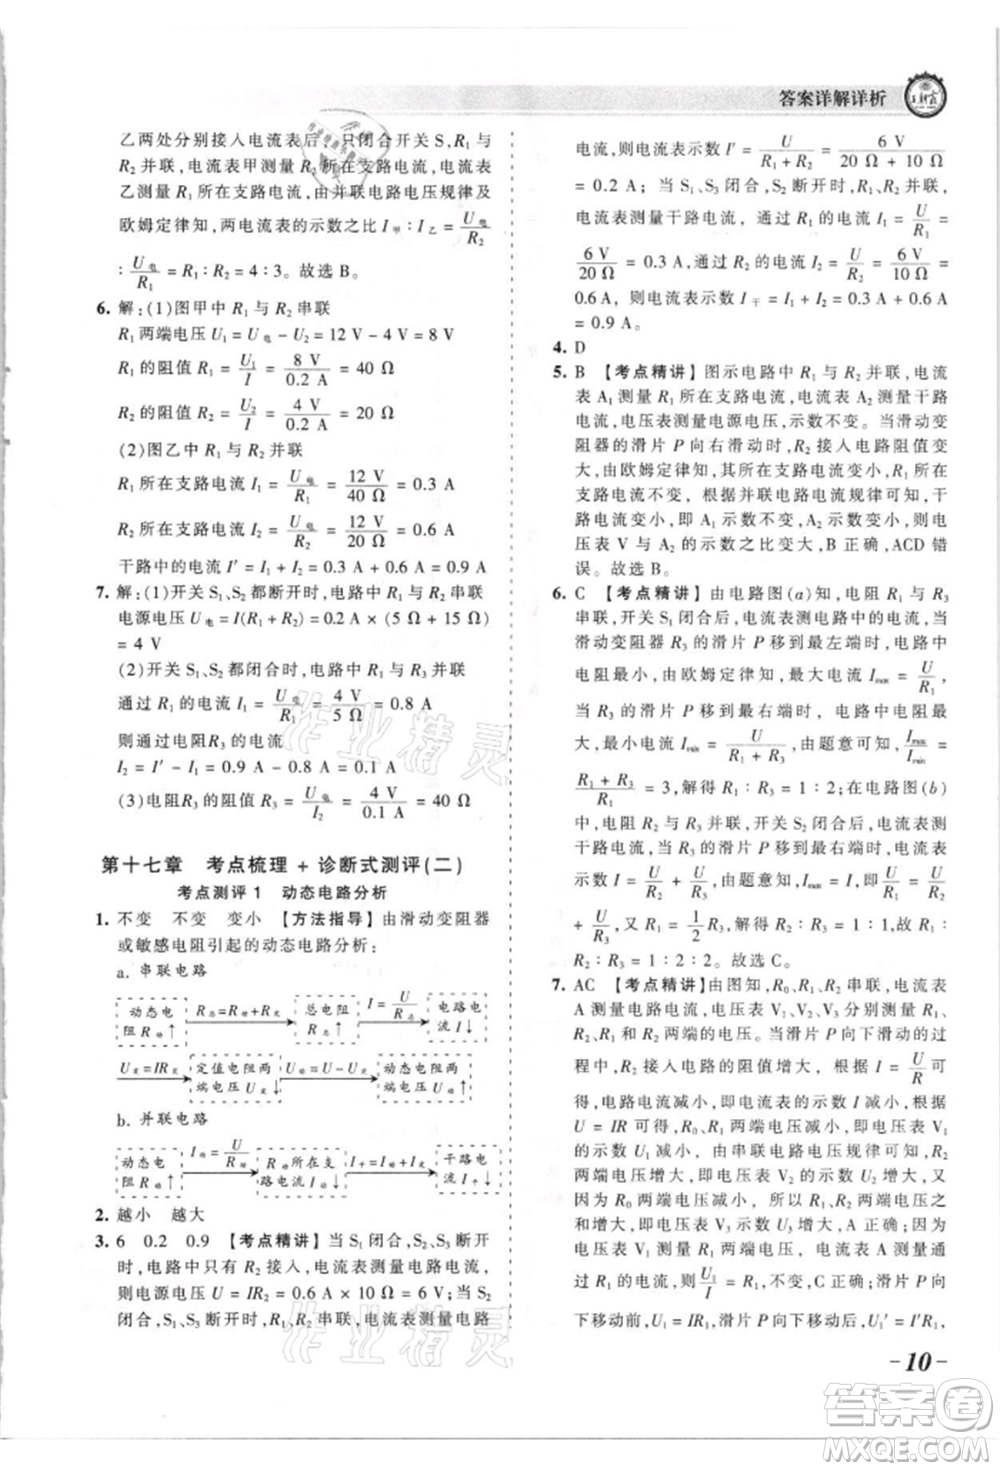 答案详解详析
王朝霞
乙两处分别接入电流表后,只闭合开关 S,R₁ 与 R₂
并联,电流表甲测量 R₂ 所在支路电流,电流表
乙测量 R₁ 所在支路电流,由并联电路电压规律及
欧姆定律知,两电流表的示数之比 I甲∶I乙 = U电/R₂
∶U电/R₁ = R₁∶R₂ = 4∶3。故选 B。
6. 解:(1)图甲中 R₁ 与 R₂ 串联
R₁ 两端电压 U₁ = U电 − U₂ = 12 V − 4 V = 8 V
R₁ 的阻值 R₁ = U₁/I = 8 V/0.2 A = 40 Ω
R₂ 的阻值 R₂ = U₂/I = 4 V/0.2 A = 20 Ω
(2)图乙中 R₁ 与 R₂ 并联
R₁ 所在支路电流 I₁ = U电/R₁ = 12 V/40 Ω = 0.3 A
R₂ 所在支路电流 I₂ = U电/R₂ = 12 V/20 Ω = 0.6 A
干路中的电流 I′ = I₁ + I₂ = 0.3 A + 0.6 A = 0.9 A
7. 解:(1)开关 S₁、S₂ 都断开时,电路中电阻 R₁、R₂ 串联
电源电压 U电 = I(R₁ + R₂) = 0.2 A × (5 Ω + 15 Ω)
= 4 V
(2)开关 S₁、S₂ 都闭合时,电路中 R₁、R₃ 并联
通过 R₁ 的电流 I₁ = U电/R₁ = 4 V/5 Ω = 0.8 A
则通过 R₃ 的电流
I₂ = I′ − I₁ = 0.9 A − 0.8 A = 0.1 A
(3)电阻 R₃ 的阻值 R₃ = U电/I₂ = 4 V/0.1 A = 40 Ω
第十七章 考点梳理 + 诊断式测评(二)
考点测评 1 动态电路分析
1. 不变 不变 变小 【方法指导】由滑动变阻器
或敏感电阻引起的动态电路分析:
a. 串联电路
动态电阻 R动↑ R总 = R定 + R动 总电阻 R总↑ I = U/R 电路电流 I↓
U定 = IR定 定值电阻两端电压 U定↓ U动 = U − U定 动态电阻两端电压 U动↑
b. 并联电路
动态电阻 R动↑ I动 = U/R动 R动所在支路电流 I动↓ I干 = I动 + I定 干路电流 I干↓
2. 越小 越大
3. 6 0.2 0.9 【考点精讲】当 S₁ 闭合,S₂、S₃ 断开
时,电路中只有 R₂ 接入电路,电流表测量电路电流,
电源电压 U = IR₂ = 0.6 A × 10 Ω = 6 V;当 S₂
闭合,S₁、S₃ 断开时,R₁、R₂ 串联,电流表测量电路
电流,则电流表示数 I′ = U/(R₁ + R₂) = 6 V/(20 Ω + 10 Ω)
= 0.2 A;当 S₁、S₃ 闭合,S₂ 断开时,R₁、R₂ 并联,
电流表测量干路电流,通过 R₁ 的电流 I₁ = U/R₁ =
6 V/20 Ω = 0.3 A,通过 R₂ 的电流 I₂ = U/R₂ = 6 V/10 Ω =
0.6 A,则电流表示数 I干 = I₁ + I₂ = 0.3 A + 0.6 A
= 0.9 A。
4. D
5. B 【考点精讲】图示电路中 R₁ 与 R₂ 并联,电流
表 A₁ 测量 R₁ 所在支路电流,电流表 A₂ 测量干路
电流,电压表测量电源电压,示数不变。当滑动变
阻器的滑片 P 向右滑动时,R₂ 接入电路阻值变
大,由欧姆定律知,其所在支路电流变小,R₁ 所在
支路电流不变,根据并联电路电流规律可知,干
路电流变小,即 A₁ 示数不变,A₂ 示数变小,故电
压表 V 与 A₂ 的示数之比变大,B 正确,ACD 错
误。故选 B。
6. C 【考点精讲】由电路图(a)知,电阻 R₁ 与 R₃
串联,开关 S 闭合后,电流表测电路中的电流,当
滑动变阻器 R₃ 的滑片 P 移到最左端时,电路中
电阻最小,由欧姆定律知,最大电流 Imax = U/R₁;当
R₃ 的滑片 P 移到最右端时,电路中电阻最
大,最小电流 Imin = U/(R₁ + R₃),由题意可知 Imax/Imin =
(R₁ + R₃)/R₁ = 3,解得 R₁∶R₃ = 1∶2;在电路图(b)
中,电阻 R₂ 与 R₃ 并联,开关 S 闭合后,电流表测
干路电流,当 P 移到最右端时,电流表
示数 I = U/R₂ + U/R₃,
R₁ = 1/2 R₃,
R₂∶R₃ = 1∶2∶2。故选 C。
7. AC 【考点精讲】由图知,R₀、R₁、R₂ 串联,电流表
A 测量电路电流,电压表 V₁、V₂、V₃ 分别测量
R₁、R₂ 和 R₁ 两端的电压。当滑片 P 向下滑动的过
程中,R₂ 接入电路的阻值增大,根据 I = U/R 可
得,电路电流减小,即电流表 A 的示数减小,根据
U = IR 可得,R₁ 两端电压减小,即电压表 V₁ 的
示数减小,由串联电路电压规律可知,R₂
两端电压增大,即电压表 V₂ 示数增大,又
因为 R₀ 两端电压减小,所以 R₁、R₂ 两端电压之
和增大,即电压表 V₃ 示数增大,A 正确;因为 R₁
下移动前,U₁ = IR₁,滑片 P 向下移动后,U₁′ = I′R₁,
- 10 -
作业精灵
答案圈
MXQE.COM